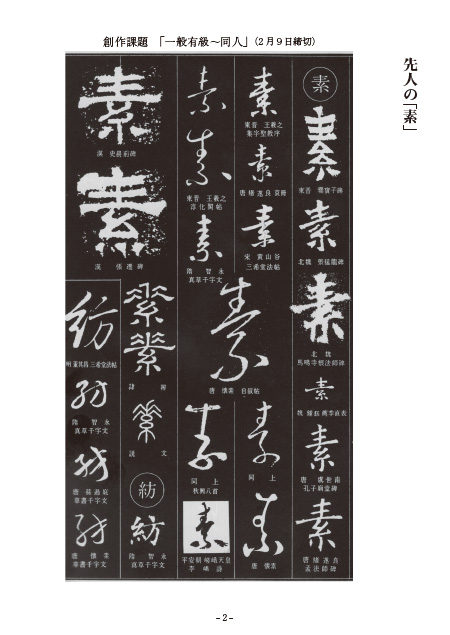 創作課題 「一般有級～同人」(2月9日締切)
先人の「素」
素
素
東晋 爨寶子碑
素
北魏 張猛龍碑
素
北魏
馬鳴寺根法師碑
素
魏 鍾繇 薦季直表
素
唐 虞世南
孔子廟堂碑
素
唐 褚遂良
孟法師碑
素
東晋 王羲之
集字聖教序
素
唐 褚遂良 哀冊
素
宋 黄山谷
三希堂法帖
素
唐 懐素 自叙帖
素
同上
素
唐 懐素
素
素
東晋 王羲之
淳化閣帖
素
隋 智永
真草千字文
素
同上
秋興八首
素
平安朝 嵯峨天皇
李嶠詩
素
漢 史晨前碑
素
漢 張遷碑
素
素
説文
紡
紡
隋 智永
真草千字文
紡
董其昌 三希堂法帖
紡
隋 智永
真草千字文
紡
唐 孫過庭
草書千字文
紡
唐 懐素
草書千字文
- 2 -